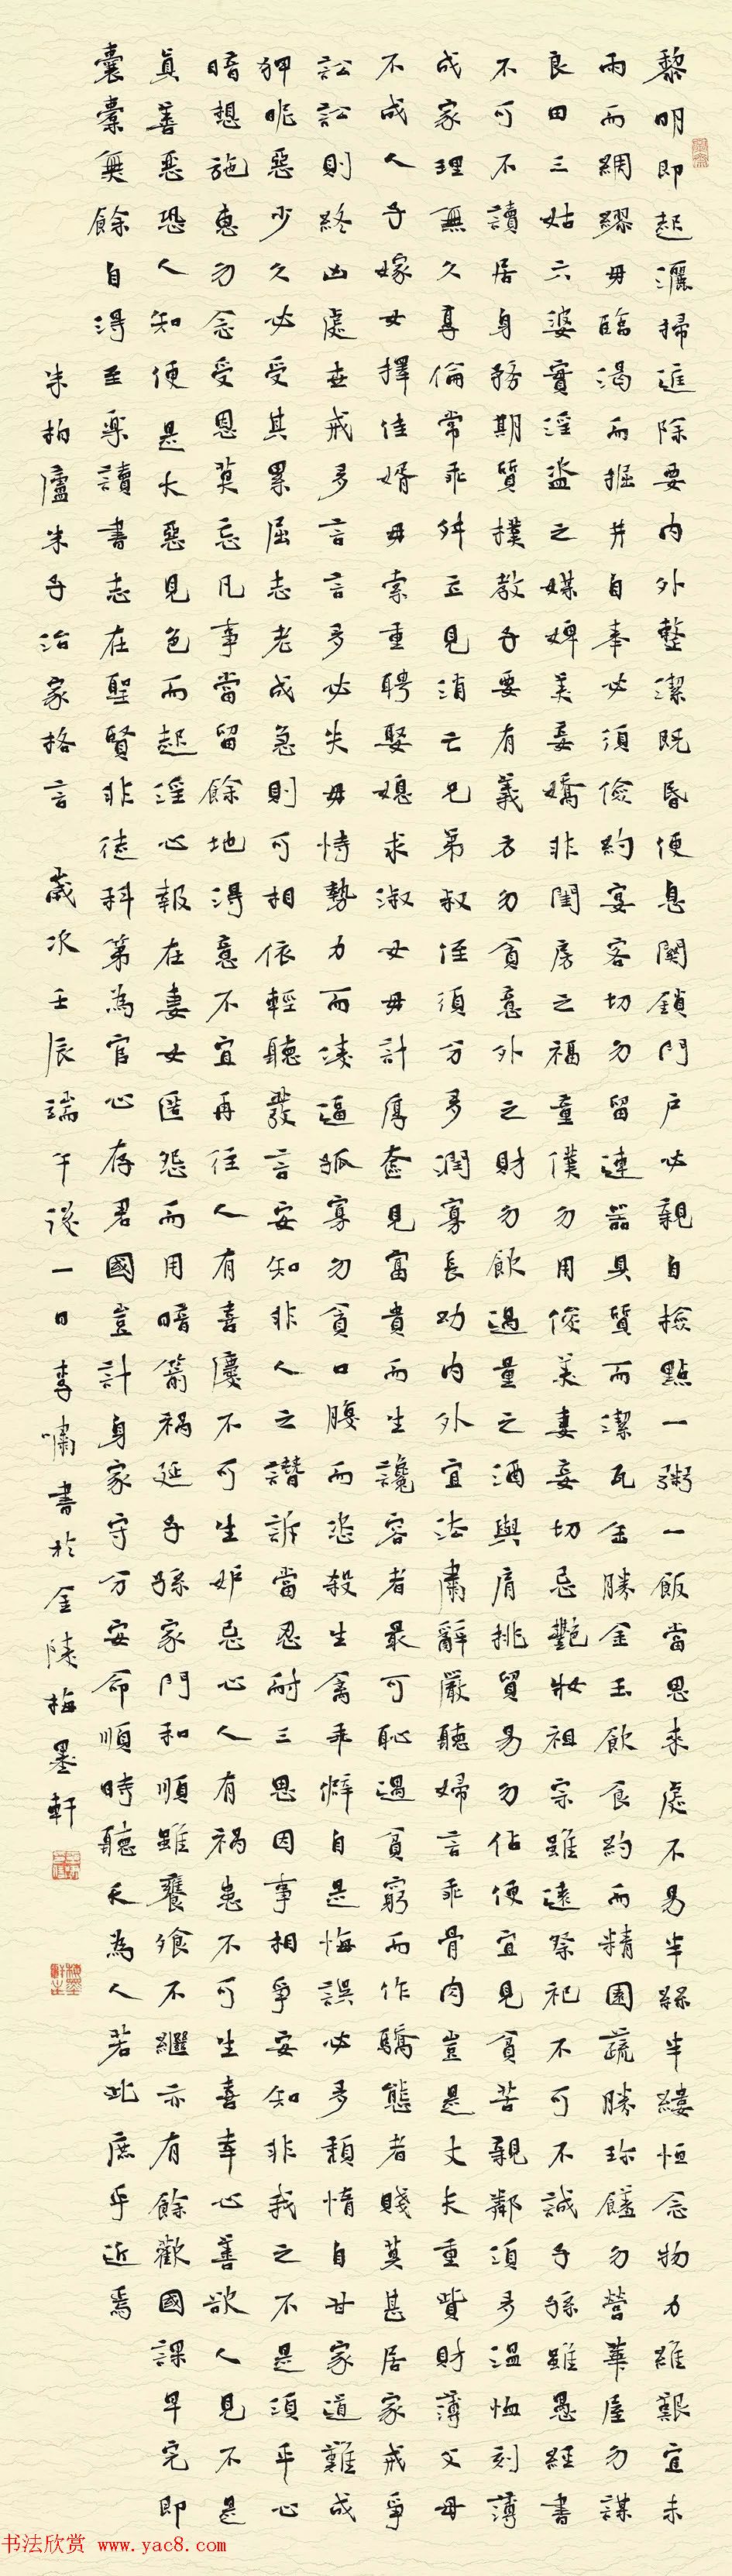 黎明即起灑掃進除要內外整潔既昏便息關鎖門戶必親自檢點一粥一飯當思來處不易半絲半縷恒念物力維艱宜未
雨而綢繆毋臨渴而掘井自奉必須儉約宴客切勿留連器具質而潔瓦缶勝金玉飲食約而精園蔬勝珍饈勿營華屋勿謀
良田三姑六婆實淫盜之媒婢美妾嬌非閨房之福童僕勿用俊美妻妾切忌艷妝祖宗雖遠祭祀不可不誠子孫雖愚經書
不可不讀居身務期質樸教子要有義方勿貪意外之財勿飲過量之酒與肩挑貿易勿佔便宜見貧苦親鄰須多溫恤刻薄
成家理無久享倫常乖舛立見消亡兄弟叔侄須分多潤寡長幼內外宜法肅辭嚴聽婦言乖骨肉豈是丈夫重貲財薄父母
不成人子嫁女擇佳婿毋索重聘娶媳求淑女毋計厚奩見富貴而生讒容者最可恥過貧窮而作驕態者賤莫甚居家戒爭
訟訟則終凶處世戒多言言多必失毋恃勢力而淩逼孤寡勿貪口腹而恣殺生禽乖僻自是悔誤必多頹惰自甘家道難成
狎昵惡少久必受其累屈志老成急則可相依輕聽發言安知非人之譖訴當忍耐三思因事相爭安知非我之不是須平心
暗想施惠勿念受恩莫忘凡事當留餘地得意不宜再往人有喜慶不可生妒忌心人有禍患不可生喜幸心善欲人見不是
真善惡恐人知便是大惡見色而起淫心報在妻女匿怨而用暗箭禍延子孫家門和順雖饔飧不繼亦有餘歡國課早完即
囊橐無餘自得至樂讀書志在聖賢非徒科第為官心存君國豈計身家守分安命順時聽天為人若此庶乎近焉
朱柏廬朱子治家格言 歲次壬辰端午後一日李嘯書於金陵梅墨軒
书法欣赏 www.yac8.com